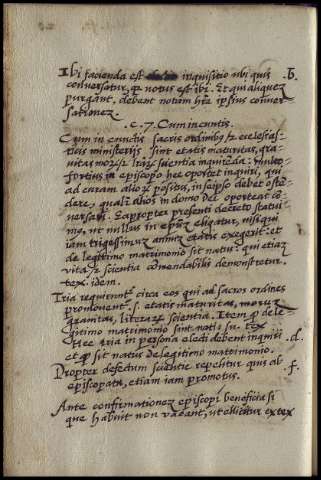 Ibi facienda est inquisitio ubi quis .b.
conversatur, qr notus est ibi. Et qui aliquez
purgãnt, debent notam hr̃e ipsius conver
sationez.
.c. 7. Cum in cunctis.
Cum in cunctis sacris ordinibꝰ et ecclesias-
ticis ministeriis sint etatis maturitas, gra-
vitas morꝝ et lr̃aꝝ scientia inquirẽda: multo
fortius in episcopo hec oportet inquiri, qui
ad curam alioꝝ positus, in seipso debet oste-
dere, qualr̃ alios in domo dei oporteat cõ-
versari. Eapropter presenti decreto statui-
mꝰ, ut nullus in ep̃um eligatur, nisi qui
iam trigesimuz annuz etatis exegerit: et
de legitimo matrimonio sit natꝰ: qui etiaz
vita, et scientia comendabilis demonstretur.
tex. idem.
Tria requirunt᷑ circa eos qui ad sacros ordines
promovent᷑. s. etatis maturitas, moruꝝ
gravitas, litteraꝝ scientia. Item qꝫ de le-
gitimo matrimonio sint nati: su. tex
Hec tria in persona electi debent inquiri .d.
et qꝫ sit natus de legitimo matrimonio.
Propter defectum scientie repelitur quis ab .f.
episcopatu, etiam iam promotus.
Ante confirmationez episcopi beneficia si
que habuit non vacant, ut ellicitur ex tex